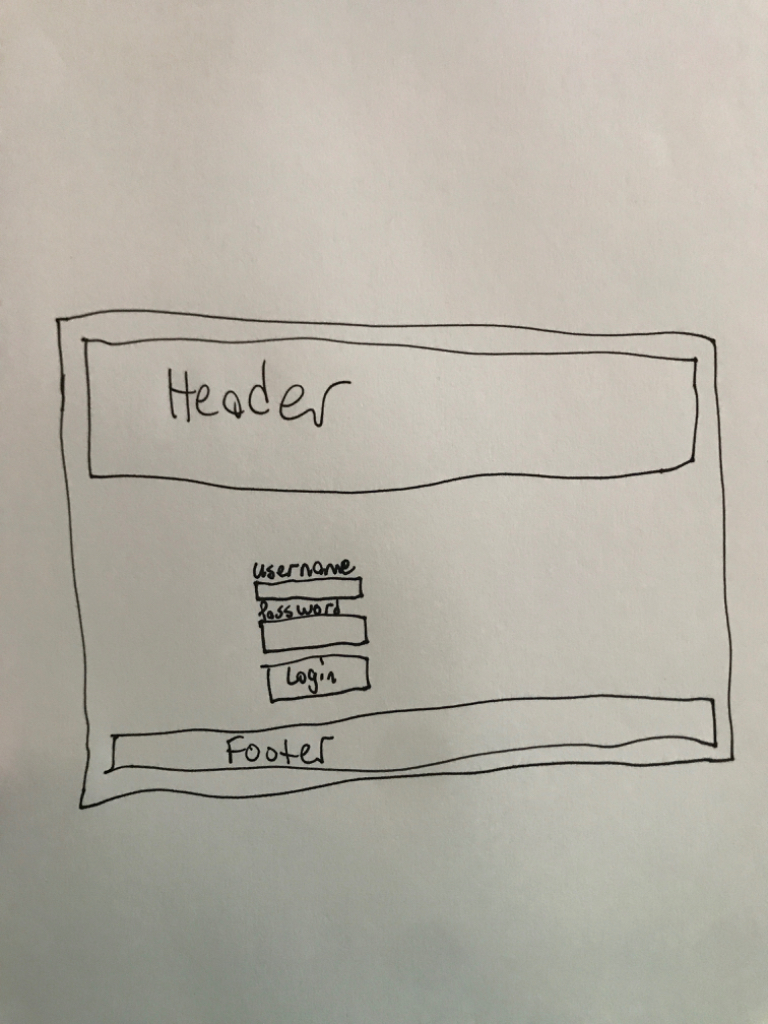 Header
username
Password
Login
Footer